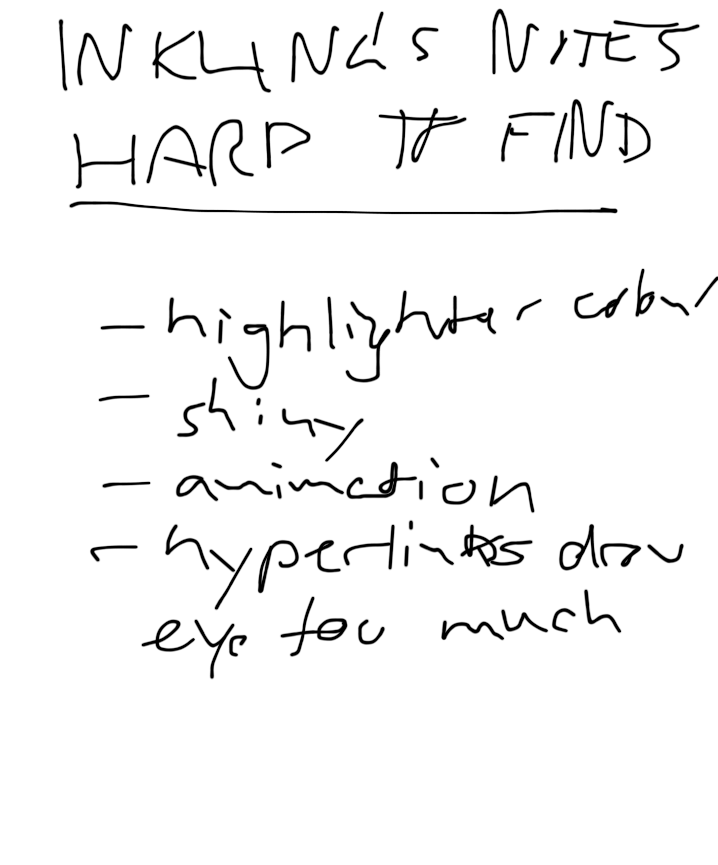 INKLING'S NOTES
HARD TO FIND
- highlighter colour
- shiny
- animation
- hyperlinks draw
eye too much